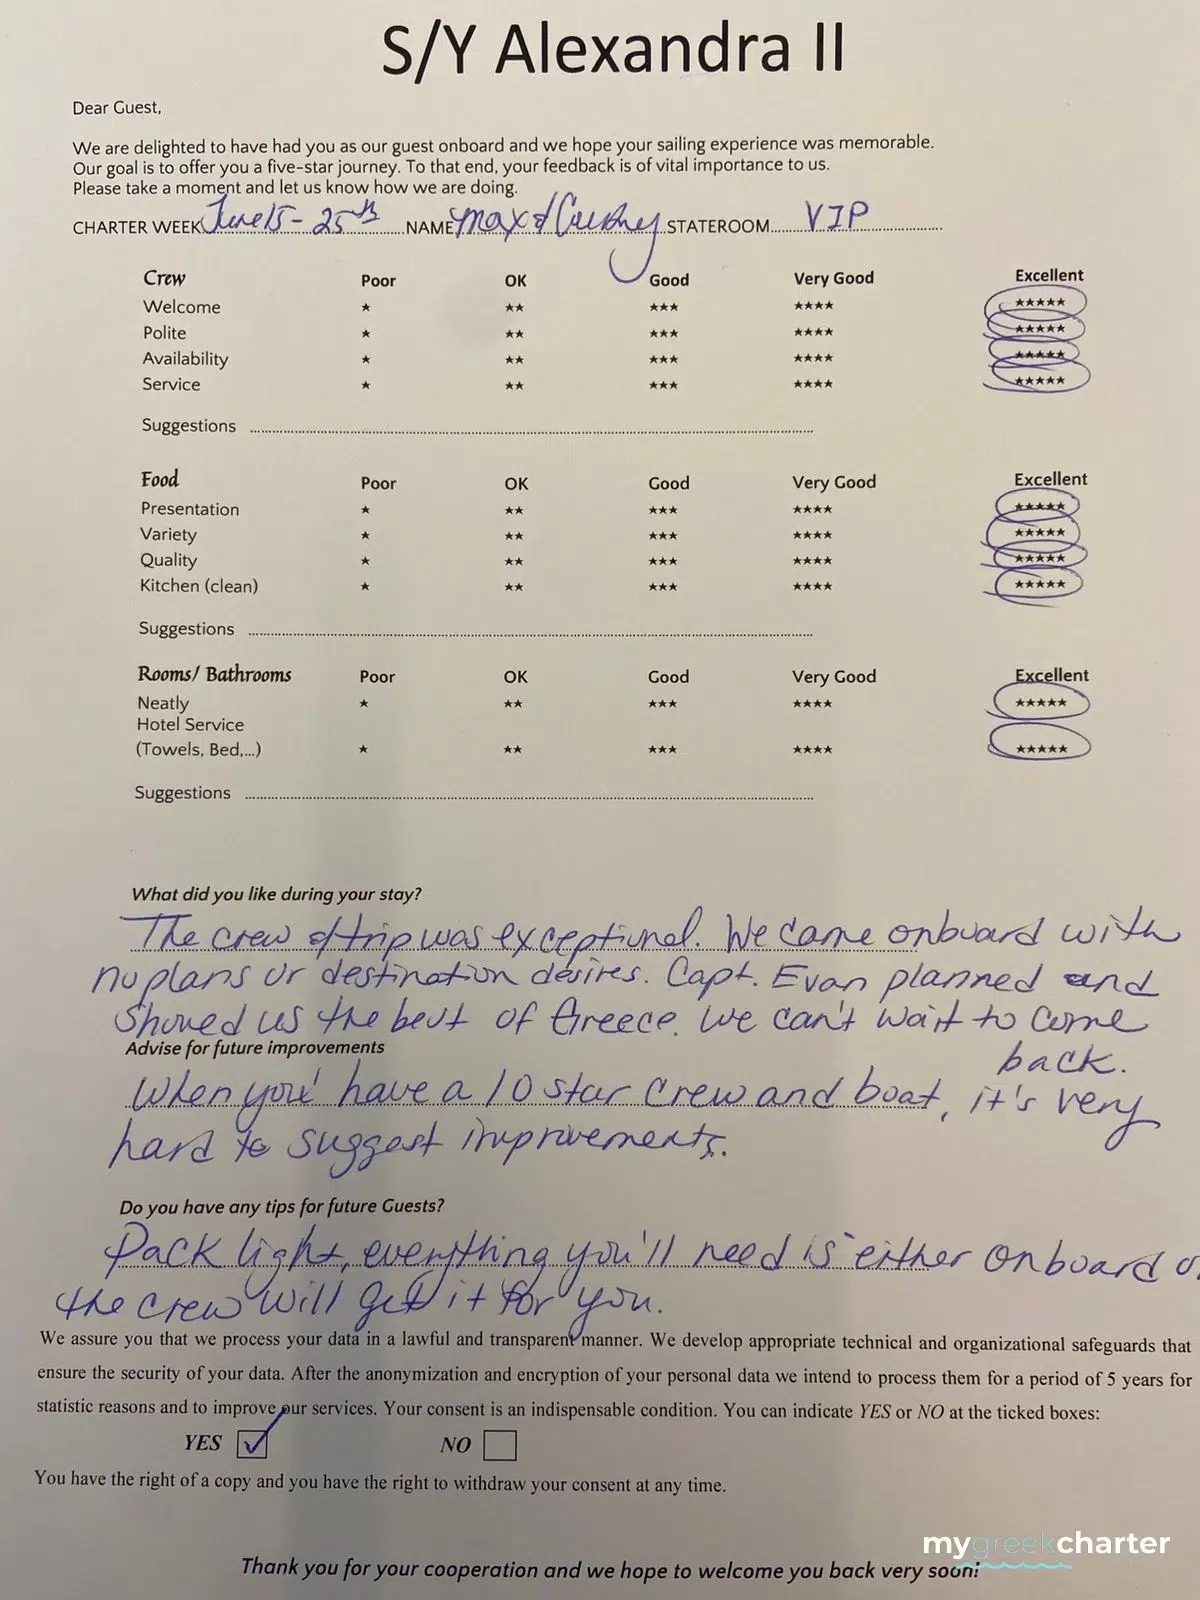 S/Y Alexandra II
Dear Guest,
We are delighted to have had you as our guest onboard and we hope your sailing experience was memorable.
Our goal is to offer you a five-star journey. To that end, your feedback is of vital importance to us.
Please take a moment and let us know how we are doing.
CHARTER WEEK June 15 - 25th NAME Max & STATEROOM VIP
Crew Poor OK Good Very Good Excellent
Welcome ★ ★★ ★★★ ★★★★ ★★★★★
Polite ★ ★★ ★★★ ★★★★ ★★★★★
Availability ★ ★★ ★★★ ★★★★ ★★★★★
Service ★ ★★ ★★★ ★★★★ ★★★★★
Suggestions
Food Poor OK Good Very Good Excellent
Presentation ★ ★★ ★★★ ★★★★ ★★★★★
Variety ★ ★★ ★★★ ★★★★ ★★★★★
Quality ★ ★★ ★★★ ★★★★ ★★★★★
Kitchen (clean) ★ ★★ ★★★ ★★★★ ★★★★★
Suggestions
Rooms/ Bathrooms Poor OK Good Very Good Excellent
Neatly ★ ★★ ★★★ ★★★★ ★★★★★
Hotel Service
(Towels, Bed,...) ★ ★★ ★★★ ★★★★ ★★★★★
Suggestions
What did you like during your stay?
The crew & trip was exceptional. We came onboard with
no plans or destination desires. Capt. Evan planned and
showed us the best of Greece. We can't wait to come
back.
Advise for future improvements
When you have a 10 star crew and boat, it's very
hard to suggest improvements.
Do you have any tips for future Guests?
Pack light, everything you'll need is either onboard
the crew will get it for you.
We assure you that we process your data in a lawful and transparent manner. We develop appropriate technical and organizational safeguards that
ensure the security of your data. After the anonymization and encryption of your personal data we intend to process them for a period of 5 years for
statistic reasons and to improve our services. Your consent is an indispensable condition. You can indicate YES or NO at the ticked boxes:
YES NO
You have the right of a copy and you have the right to withdraw your consent at any time.
mygreekcharter
Thank you for your cooperation and we hope to welcome you back very soon!